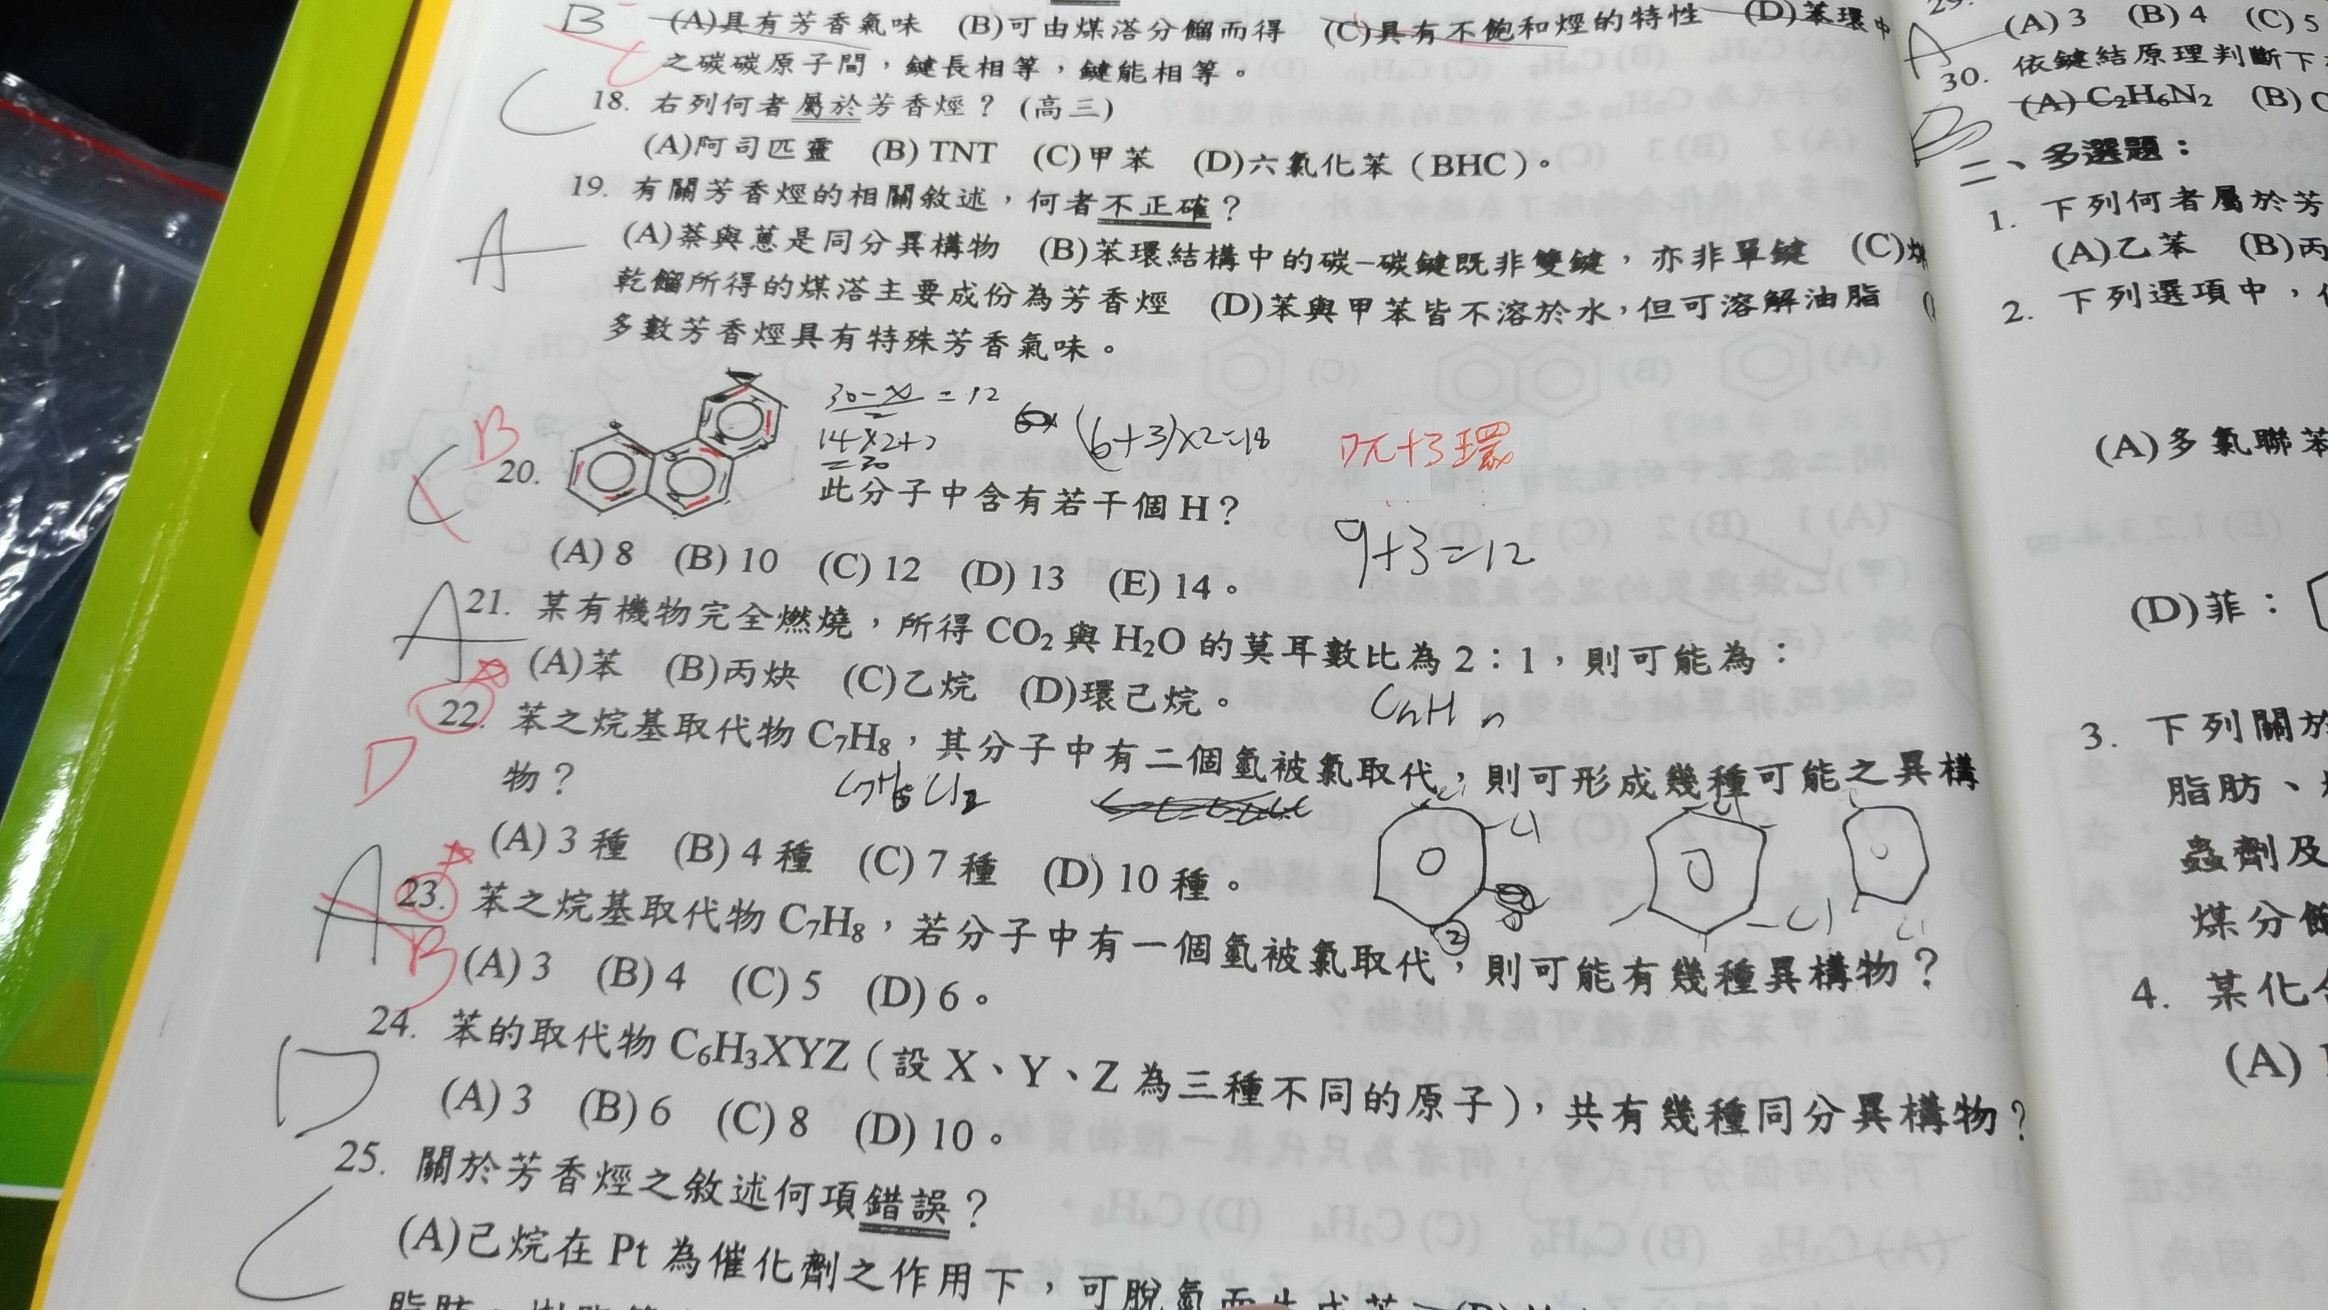 B (A)具有芳香氣味 (B)可由煤溚分餾而得 (C)具有不飽和烴的特性 (D)苯環中
之碳碳原子間，鍵長相等，鍵能相等。
C 18. 右列何者屬於芳香烴？(高三)
(A)阿司匹靈 (B) TNT (C)甲苯 (D)六氯化苯（BHC）。
19. 有關芳香烴的相關敘述，何者不正確？
A (A)萘與蒽是同分異構物 (B)苯環結構中的碳–碳鍵既非雙鍵，亦非單鍵 (C)煤
乾餾所得的煤溚主要成份為芳香烴 (D)苯與甲苯皆不溶於水，但可溶解油脂
多數芳香烴具有特殊芳香氣味。
30-X/2 = 12
14×2+2
=30
(6+3)×2=18
7π+3環
C B 20. 此分子中含有若干個 H？
9+3=12
(A) 8 (B) 10 (C) 12 (D) 13 (E) 14。
A 21. 某有機物完全燃燒，所得 CO2 與 H2O 的莫耳數比為 2：1，則可能為：
(A)苯 (B)丙炔 (C)乙烷 (D)環己烷。
CnHn
D 22. 苯之烷基取代物 C7H8，其分子中有二個氫被氯取代，則可形成幾種可能之異構
物？
C7H6Cl2
Cl
Cl
Cl
②
(A) 3 種 (B) 4 種 (C) 7 種 (D) 10 種。
A B 23. 苯之烷基取代物 C7H8，若分子中有一個氫被氯取代，則可能有幾種異構物？
(A) 3 (B) 4 (C) 5 (D) 6。
24. 苯的取代物 C6H3XYZ（設 X、Y、Z 為三種不同的原子），共有幾種同分異構物？
D (A) 3 (B) 6 (C) 8 (D) 10。
25. 關於芳香烴之敘述何項錯誤？
C (A)己烷在 Pt 為催化劑之作用下，可脫氫而生成苯
29.
(A) 3 (B) 4 (C) 5
A 30. 依鍵結原理判斷下
B (A) C2H6N2 (B) C
二、多選題：
1. 下列何者屬於芳
(A)乙苯 (B)丙
2. 下列選項中，
(A)多氯聯苯
(D)菲：
3. 下列關於
脂肪、
蟲劑及
煤分餾
4. 某化合
(A)